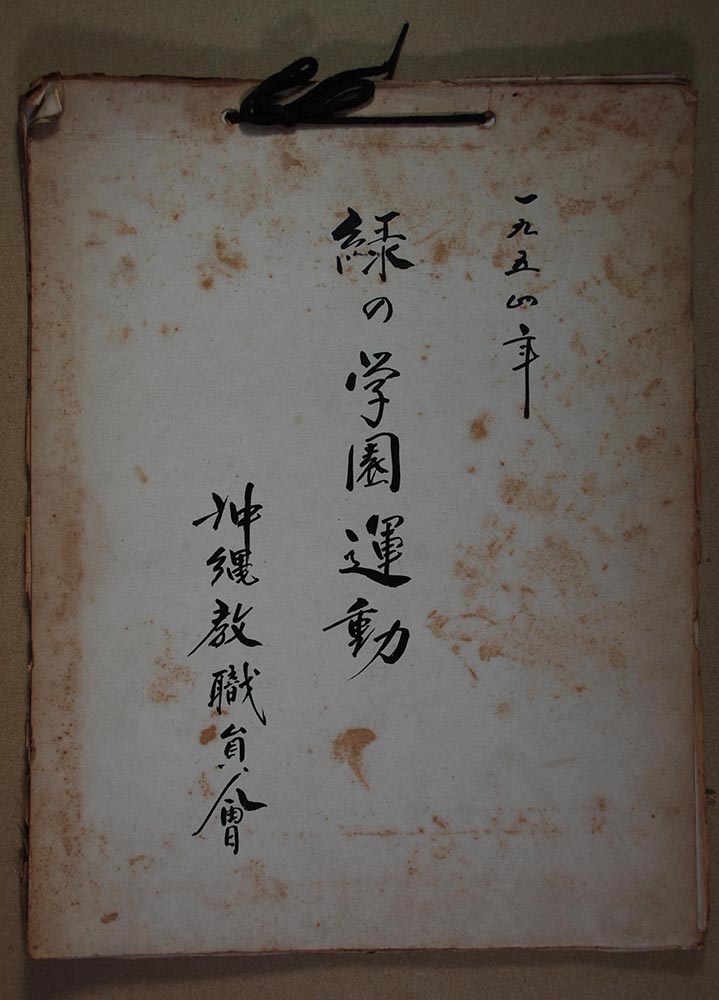 一九五四年
緑の学園運動
沖縄教職員會